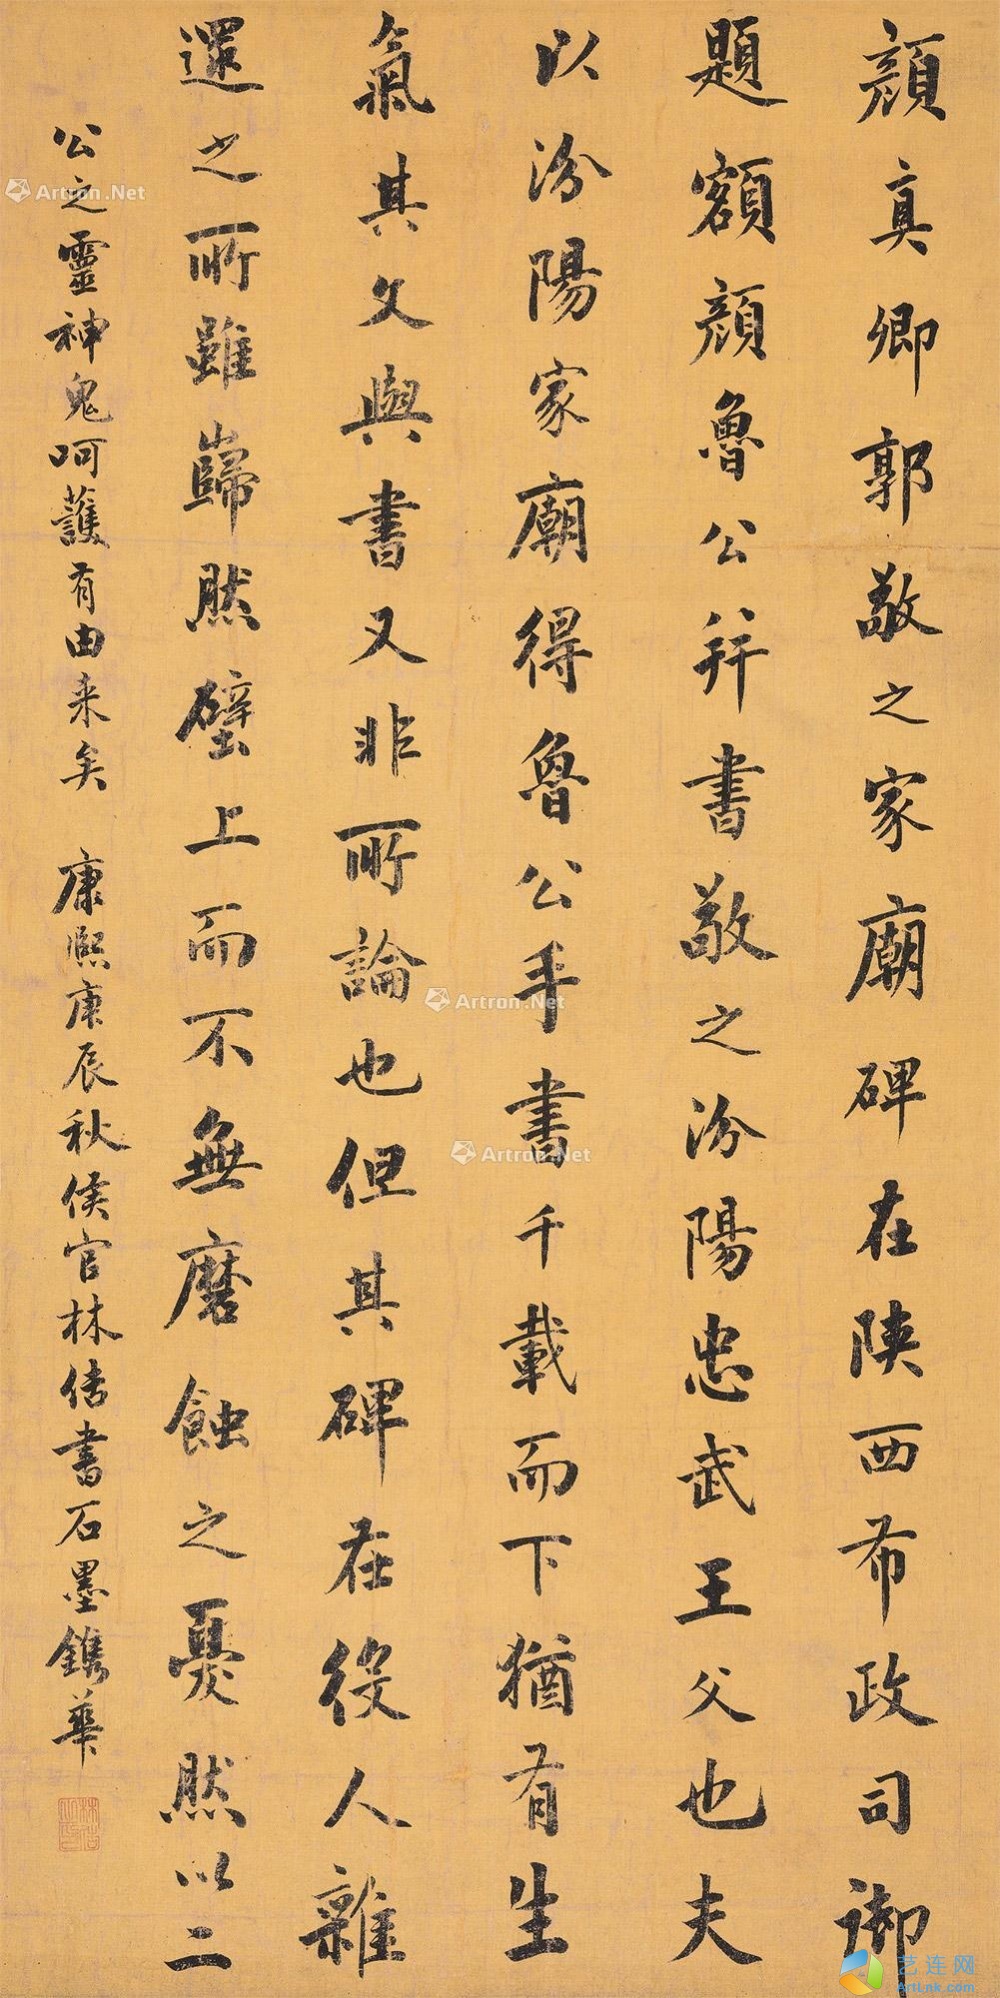 顔真卿郭敬之家廟碑在陝西布政司御
題額顔魯公并書敬之汾陽忠武王父也夫
以汾陽家廟得魯公手書千載而下猶有生
氣其文與書又非所論也但其碑在役人雜
還之所雖巋然壁上而不無磨蝕之憂然以二
公之靈神鬼呵護有由来矣 康熙庚辰秋侯官林佶書石墨鐫華
Artron.Net
Artron.Net
Artron.Net
艺连网
ArtLnk.com